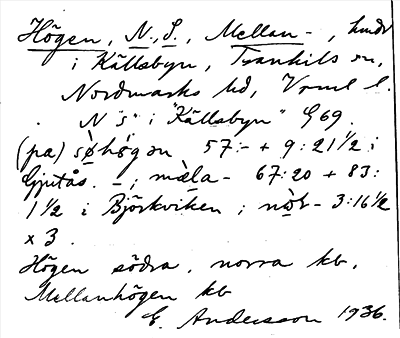 Högen, N., S., Mellan-, hmdr
i Källsbyn, Trankils sn,
Nordmarks hd, Vrml l.
N "s" i "Källsbyn" G69.
(pa) søhøgən 57:- + 9:21½ i
Gjutås. -; mæla- 67:20 + 83:
1½ i Björkviken; nòr- 3:16½
x 3.
Högen södra, norra kb,
Mellanhögen kb
E. Andersson 1936.